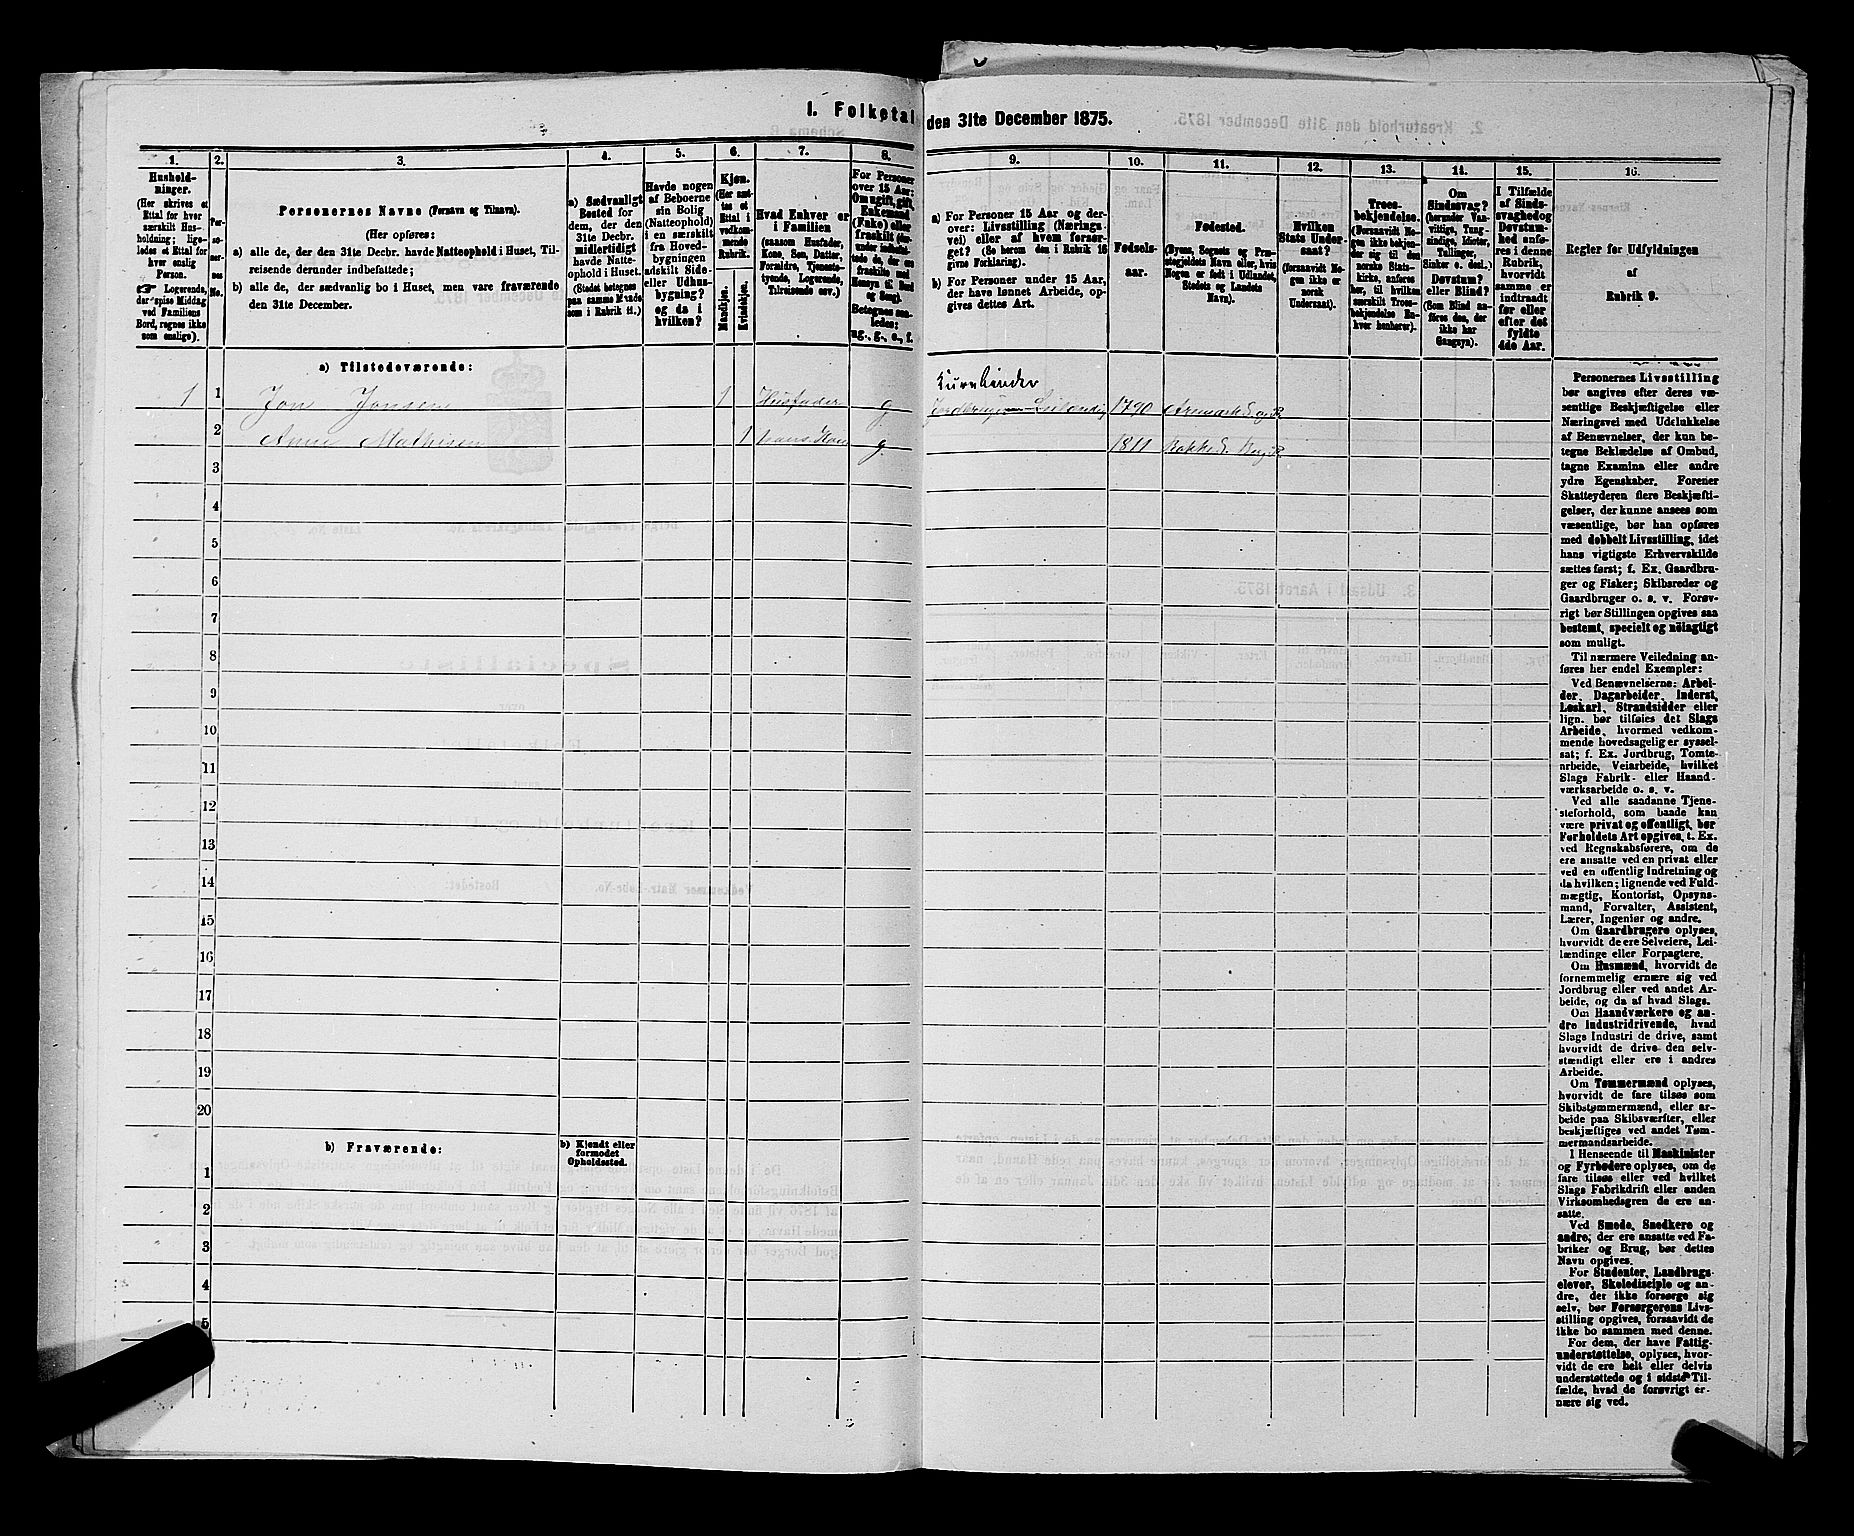 I. Folketal den 31te December 1875.
1.
2.
3.
4.
5.
6.
7.
8.
9.
10.
11.
12.
13.
14.
15.
16.
Hushold-
ninger.
(Her skrives et
Ettal for hver
særskilt Hus-
holdning; lige-
ledes et Ettal for
hver enslig
Person.
☞ Logerende,
der spise Middag
ved Familiens
Bord, regnes ikke
som enslige).
Per-
so-
ner-
nes
No.
Personernes Navne (Fornavn og Tilnavn).
(Her opføres:
a) alle de, der den 31te Decbr. havde Natteophold i Huset, Til-
reisende derunder indbefattede;
b) alle de, der sædvanlig bo i Huset, men vare fraværende
den 31te December.
a) Sædvanligt
Bosted for
dem, der den
31te Decbr.
midlertidigt
havde Natte-
ophold i Huset.
(Stedet betegnes
paa samme Maade
som i Rubrik 11.)
Havde nogen
af Beboerne
sin Bolig
(Natteophold)
i en særskilt
fra Hoved-
bygningen
adskilt Side-
eller Udhus-
bygning?
og da i
hvilken?
Kjøn.
(Her sæt-
tes et
Ettal i
vedkom-
mende
Rubrik.
Mandkjøn.
Kvindekjøn.
Hvad Enhver er
i Familien
(saasom Husfader,
Kone, Søn, Datter,
Forældre, Tjeneste-
tyende, Logerende,
Tilreisende osv.)
For Personer
over 15 Aar:
Om ugift, gift,
Enkemand
(Enke) eller
fraskilt
Betegnes saa-
ledes:
ug., g., e., f.
a) For Personer 15 Aar og der-
over: Livsstilling (Nærings-
vei) eller af hvem forsør-
get? (Se herom den i Rubrik 16
givne Forklaring).
b) For Personer under 15 Aar,
der have lønnet Arbeide, op-
gives dettes Art.
Fødsels-
aar.
Fødested.
(Byens, Sognets og Præ-
stegjeldets Navn eller, hvis
Nogen er født i Udlandet,
Stedets og Landets
Navn).
Hvilken
Stats Under-
saat?
(forsaavidt No-
gen ikke er
norsk
Undersaat).
Troes-
bekjendelse.
(Forsaavidt No-
gen ikke bekjen-
der sig til den
norske Stats-
kirke, anføres
her, til hvilken
særskilt Troes-
bekjendelse En-
hver henhører).
Om
Sindssvag?
(herunder Van-
vittige, Tung-
sindige, Idioter,
Tullinger,
Sinker o. desl.)
Døvstum?
eller Blind?
(Som Blind an-
føres den, der
ikke har
Gangsyn).
I Tilfælde
af Sinds-
svaghed og
Døvstum-
hed anfø-
res i denne
Rubrik,
hvorvidt
samme er
indtraadt
før eller
efter det
fyldte
4de Aar.
Regler for Udfyldningen
af
Rubrik 9.
a) Tilstedeværende:
Kurvbinder
1 1 Jon Jonsen 1 Husfader g 1790
2 Anne Mathisen 1 hans Kone g 1811
3
4
5
6
7
8
9
10
11
12
13
14
15
16
17
18
19
20
b) Fraværende:
b) Kjendt eller
formodet
Opholdssted.
1
2
3
4
5
Personernes Livsstilling
bør angives efter deres væ-
sentlige Beskjæftigelse eller
Næringsvei med Udelukkelse
af Benævnelser, der kun be-
tegne Beklædelse af Ombud,
tagne Examina eller andre
ydre Egenskaber. Forener
Skatteyderen flere Beskjæfti-
gelser, der kunne ansees som
væsentlige, bør han opføres
med dobbelt Livsstilling, idet
hans vigtigste Erhvervskilde
sættes først; f. Ex. Gaardbru-
ger og Fisker; Skibsreder og
Gaardbruger o. s. v. Forøv-
rigt bør Stillingen opgives saa
bestemt, specielt og nøiagtigt
som muligt.
Til nærmere Veiledning an-
føres her endel Exempler:
Ved Benævnelserne: Arbei-
der, Dagarbeider, Inderst,
Løskarl, Strandsidder eller
lign. bør tilføies det Slags
Arbeide, hvormed vedkom-
mende hovedsagelig er syssel-
sat; f. Ex. Jordbrug, Tomte-
arbeide, Veiarbeide, hvilket
Slags Fabrik- eller Haand-
værksarbeide o. s. v.
Ved alle saadanne Tjene-
steforhold, som baade kan
være privat og offentligt, bør
Forholdets Art opgives, t. Ex.
ved Regnskabsførere, om de
ere ansatte ved en privat eller
ved en offentlig Indretning og
da hvilken; lignende ved Fuld-
mægtig, Kontorist, Opsyns-
mand, Forvalter, Assistent,
Lærer, Ingeniør og andre.
Om Gaardbrugere oplyses,
hvorvidt de ere Selveiere, Lei-
lændinge eller Forpagtere.
Om Husmænd, hvorvidt de
fornemmelig ernære sig ved
Jordbrug eller ved andet Ar-
beide, og da af hvad Slags.
Om Haandværkere og an-
dre Industridrivende, hvad
Slags Industri de drive, samt
hvorvidt de drive den selv-
stændigt eller ere i andres
Arbeide.
Om Tømmermænd oplyses,
hvorvidt de fare tilsøs som
Skibstømmermænd, eller ar-
beide paa Skibsværfter, eller
beskjæftiges ved andet Tøm-
mermandsarbeide.
I Henseende til Maskinister
og Fyrbødere oplyses, om de
fare tilsøs eller ved hvilket
Slags Fabrikdrift eller anden
Virksomhedsgren de ere an-
satte.
Ved Smede, Snedkere og
andre, der ere ansatte ved Fa-
briker og Brug, bør dettes
Navn opgives.
For Studenter, Landbrugs-
elever, Skoledisciple og an-
dre, der ikke forsørge sig
selv, bør Forsørgerens Livs-
stilling opgives, forsaavidt de
ikke bo sammen med denne.
For dem, der have Fattig-
understøttelse, oplyses, hvor-
vidt de ere helt eller delvis
understøttede og i sidste Til-
fælde, hvad de forøvrigt er-
nære sig ved.